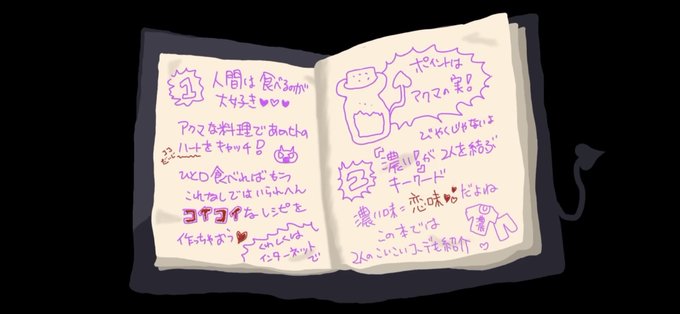 1 人間は食べるのが
大好き♥♥♥
アクマな料理であの人の
ハートをキャッチ!
ココ
だいじ
ひと口食べればもう
これなしではいられへん
コイコイなレシピを
作っちゃおう♥
くわしくは
インターネットで
ポイントは
アクマの実!
びやくじゃないよ
2 『濃い!』が2人を結ぶ
キーワード
濃い味=恋味♥♥だよね
この本では
2人のこいこいコーデも紹介
濃